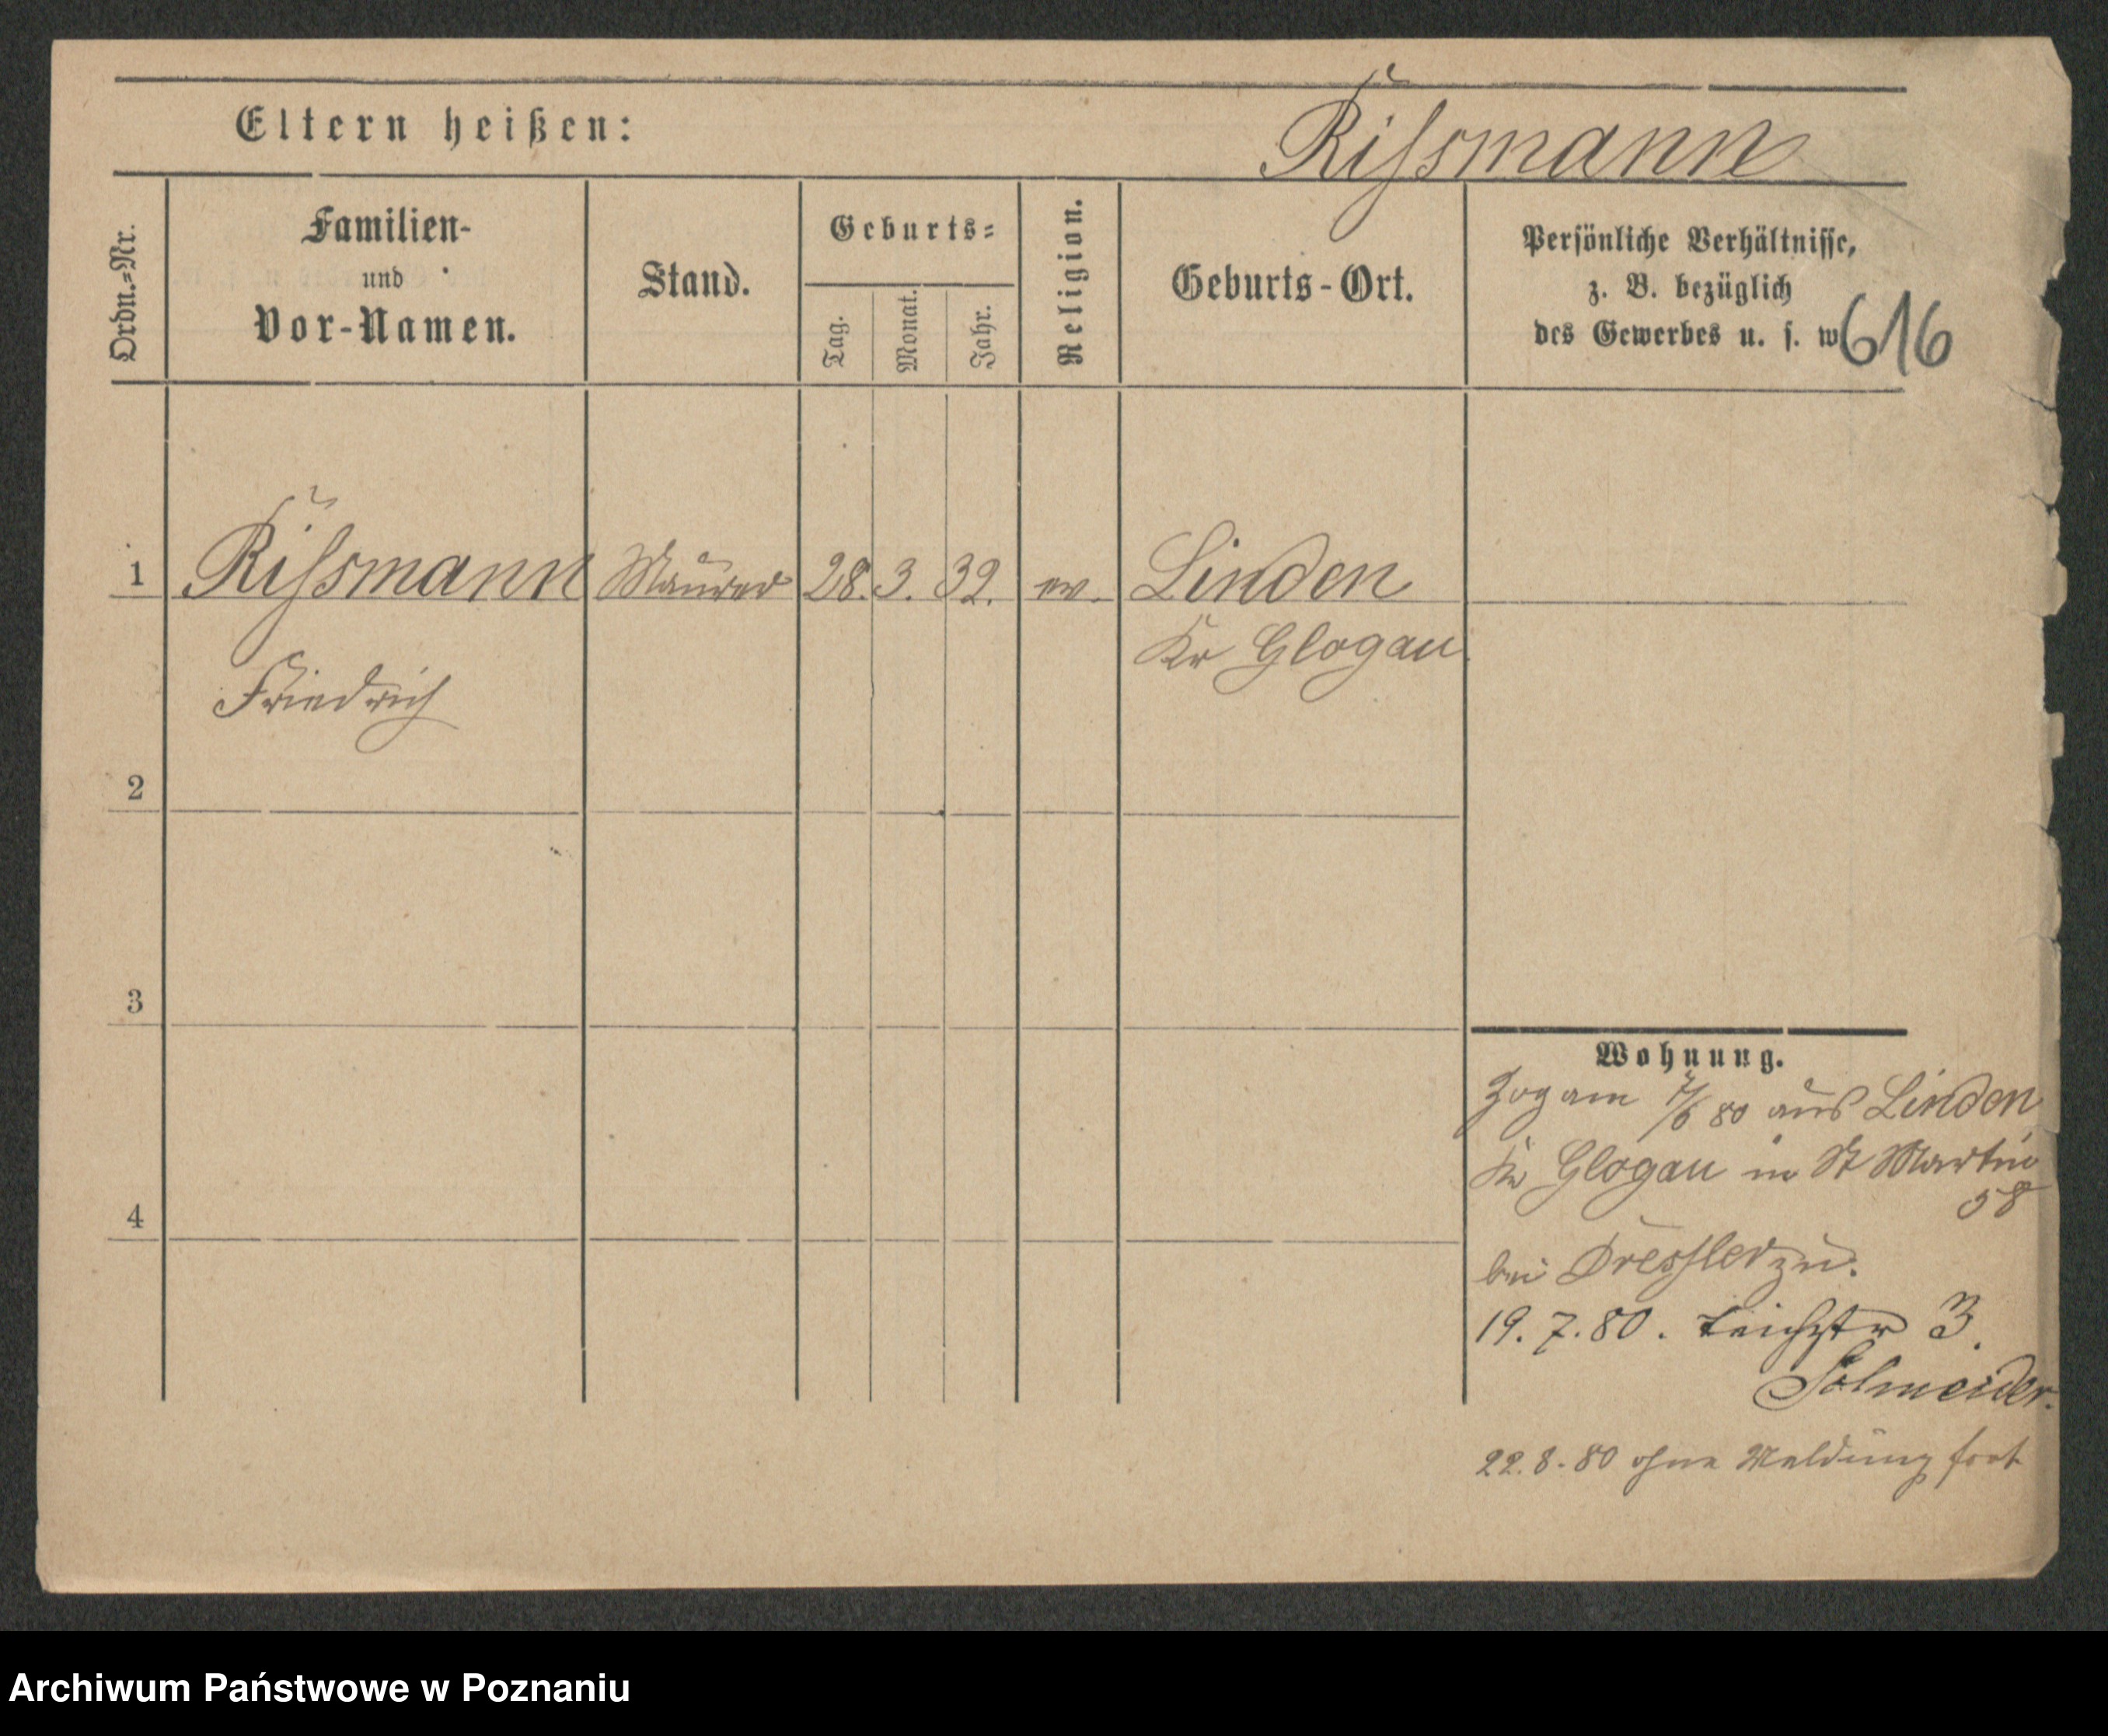 Eltern heißen:
Rissmann
Ordn.-Nr.
Familien-
und
Vor-Namen.
Stand.
Geburts-
Tag.
Monat.
Jahr.
Religion.
Geburts-Ort.
Persönliche Verhältnisse,
z. B. bezüglich
des Gewerbes u. s. w
616
1 Rissmann Maurer 28. 3. 32. ev. Linden
Kr Glogau
Friedrich
2
3
4
Wohnung.
Zog am 7/6 80 aus Linden
Kr Glogau in St Martin
58
bei Dressler zu.
19. 7. 80. Teichstr 3.
Schneider.
22. 8. 80 ohne Meldung fort
Archiwum Państwowe w Poznaniu